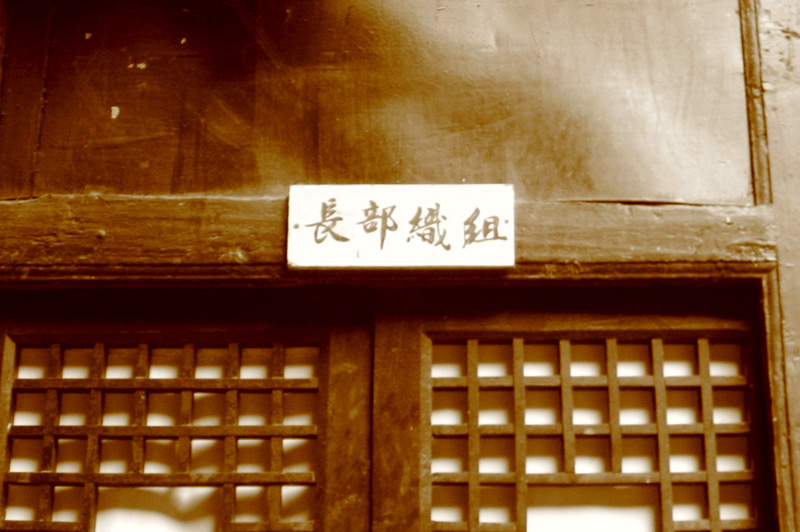 組織部長